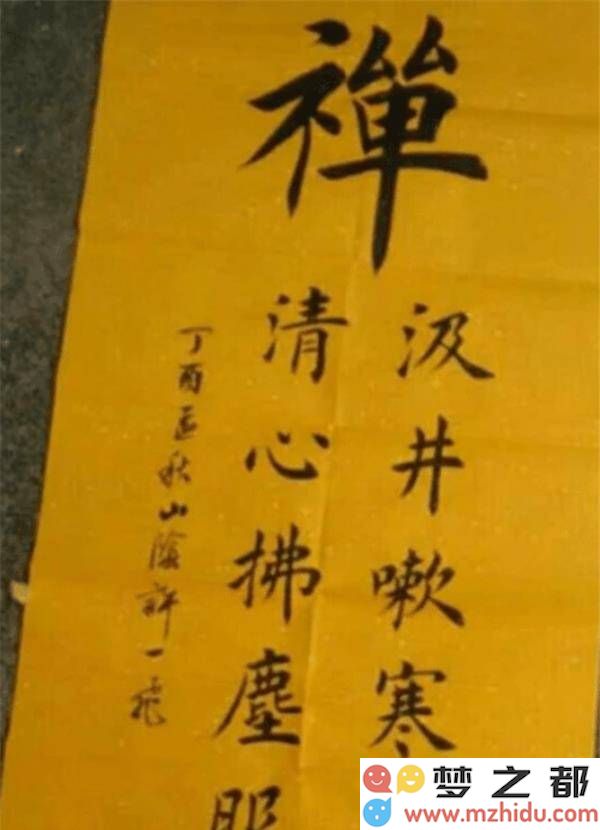 禪
汲井嗽寒
清心拂塵服
丁酉孟秋山陰許一飛
梦之都
www.mzhidu.com